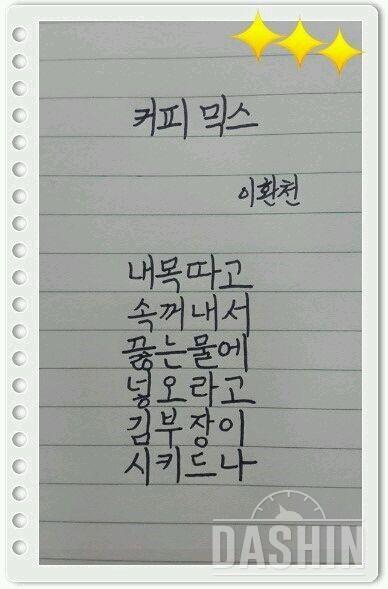 커피 믹스
이환천
내목따고
속꺼내서
끓는물에
넣오라고
김부장이
시키드나
DASHIN